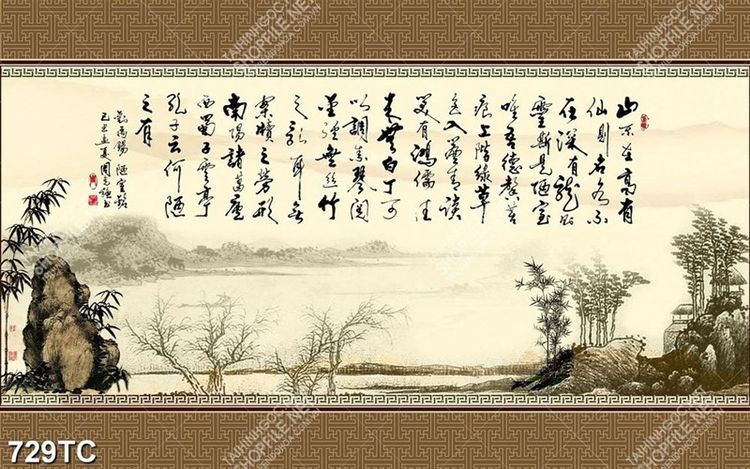 山不在高有
仙則名水不
在深有龍則
靈斯是陋室
唯吾德馨苔
痕上階綠草
色入簾青談
笑有鴻儒往
來無白丁可
以調素琴閱
金經無絲竹
之亂耳無
案牘之勞形
南陽諸葛廬
西蜀子雲亭
孔子云何陋
之有
劉禹錫 陋室銘
己丑孟夏周書
TAIHINHNGOC
SHOPFILE.NET
729TC